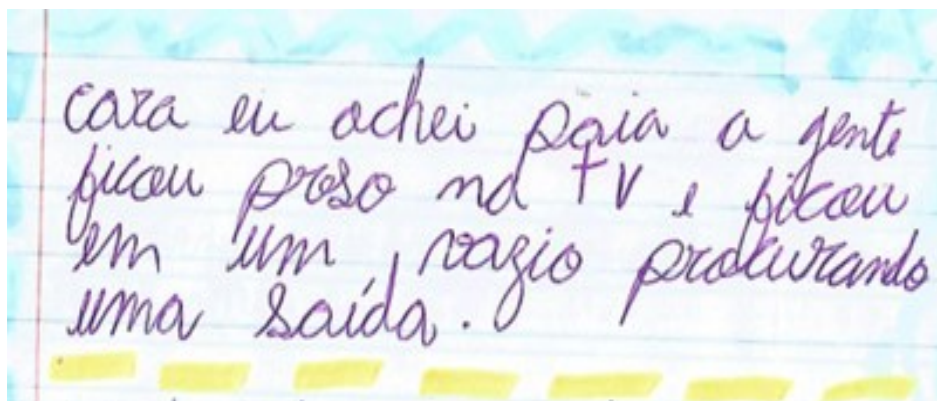 cara eu achei paia a gente
ficou preso na TV e ficou
em um vazio procurando
uma saída.